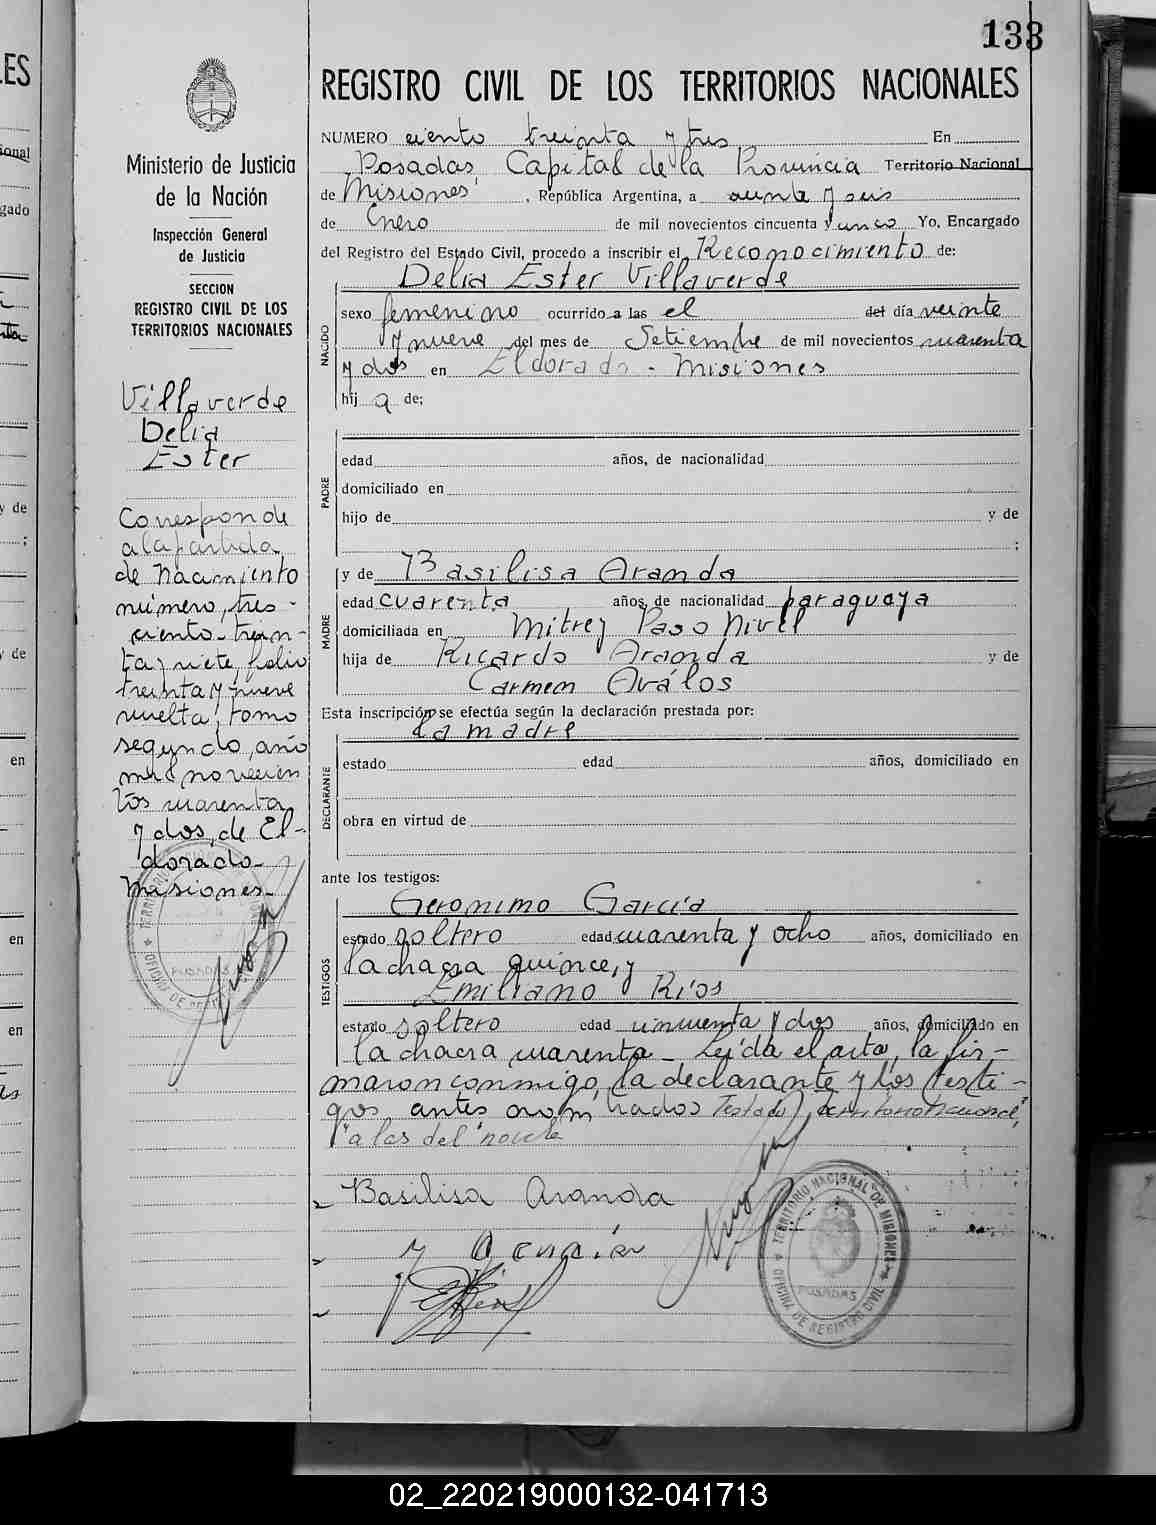 133
REGISTRO CIVIL DE LOS TERRITORIOS NACIONALES
NUMERO ciento treinta y tres En
Posadas, Capital de la Provincia Territorio Nacional
de Misiones, República Argentina, a veinte y seis
de Enero de mil novecientos cincuenta y unco Yo, Encargado
del Registro del Estado Civil, procedo a inscribir el Reconocimiento de:
Delia Ester Villaverde
NACIDO
sexo femenino ocurrido a las el del día veinte
y nueve del mes de Setiembre de mil novecientos cuarenta
y dos en Eldorado - Misiones
hij a de;
PADRE
edad años, de nacionalidad
domiciliado en
hijo de y de
;
MADRE
y de Basilisa Aranda
edad cuarenta años, de nacionalidad paraguaya
domiciliada en Mitre y Paso Nivel
hija de Ricardo Aranda y de
Carmen Aválos
Esta inscripción se efectúa según la declaración prestada por:
la madre
DECLARANTE
estado edad años, domiciliado en
obra en virtud de
ante los testigos:
TESTIGOS
Geronimo García
estado soltero edad cuarenta y ocho años, domiciliado en
la chacra quince, y
Emiliano Ríos
estado soltero edad cincuenta y dos años, domiciliado en
la chacra cuarenta - Leída el acta, la fir-
maron conmigo, la declarante y los testi-
gos antes nombrados Testado "territorio nacional",
"a las del"
Basilisa Aranda
TERRITORIO NACIONAL DE MISIONES
POSADAS
OFICINA DE REGISTRO CIVIL
Ministerio de Justicia
de la Nación
Inspección General
de Justicia
SECCION
REGISTRO CIVIL DE LOS
TERRITORIOS NACIONALES
Villaverde
Delia
Ester
Corresponde
a la partida
de nacimiento
número, tres-
ciento-trein-
ta y siete, folio
treinta y nueve
vuelta, tomo
segundo, año
mil novecien
tos cuarenta
y dos, de El-
dorado-
Misiones-
POSADAS
02_220219000132-041713